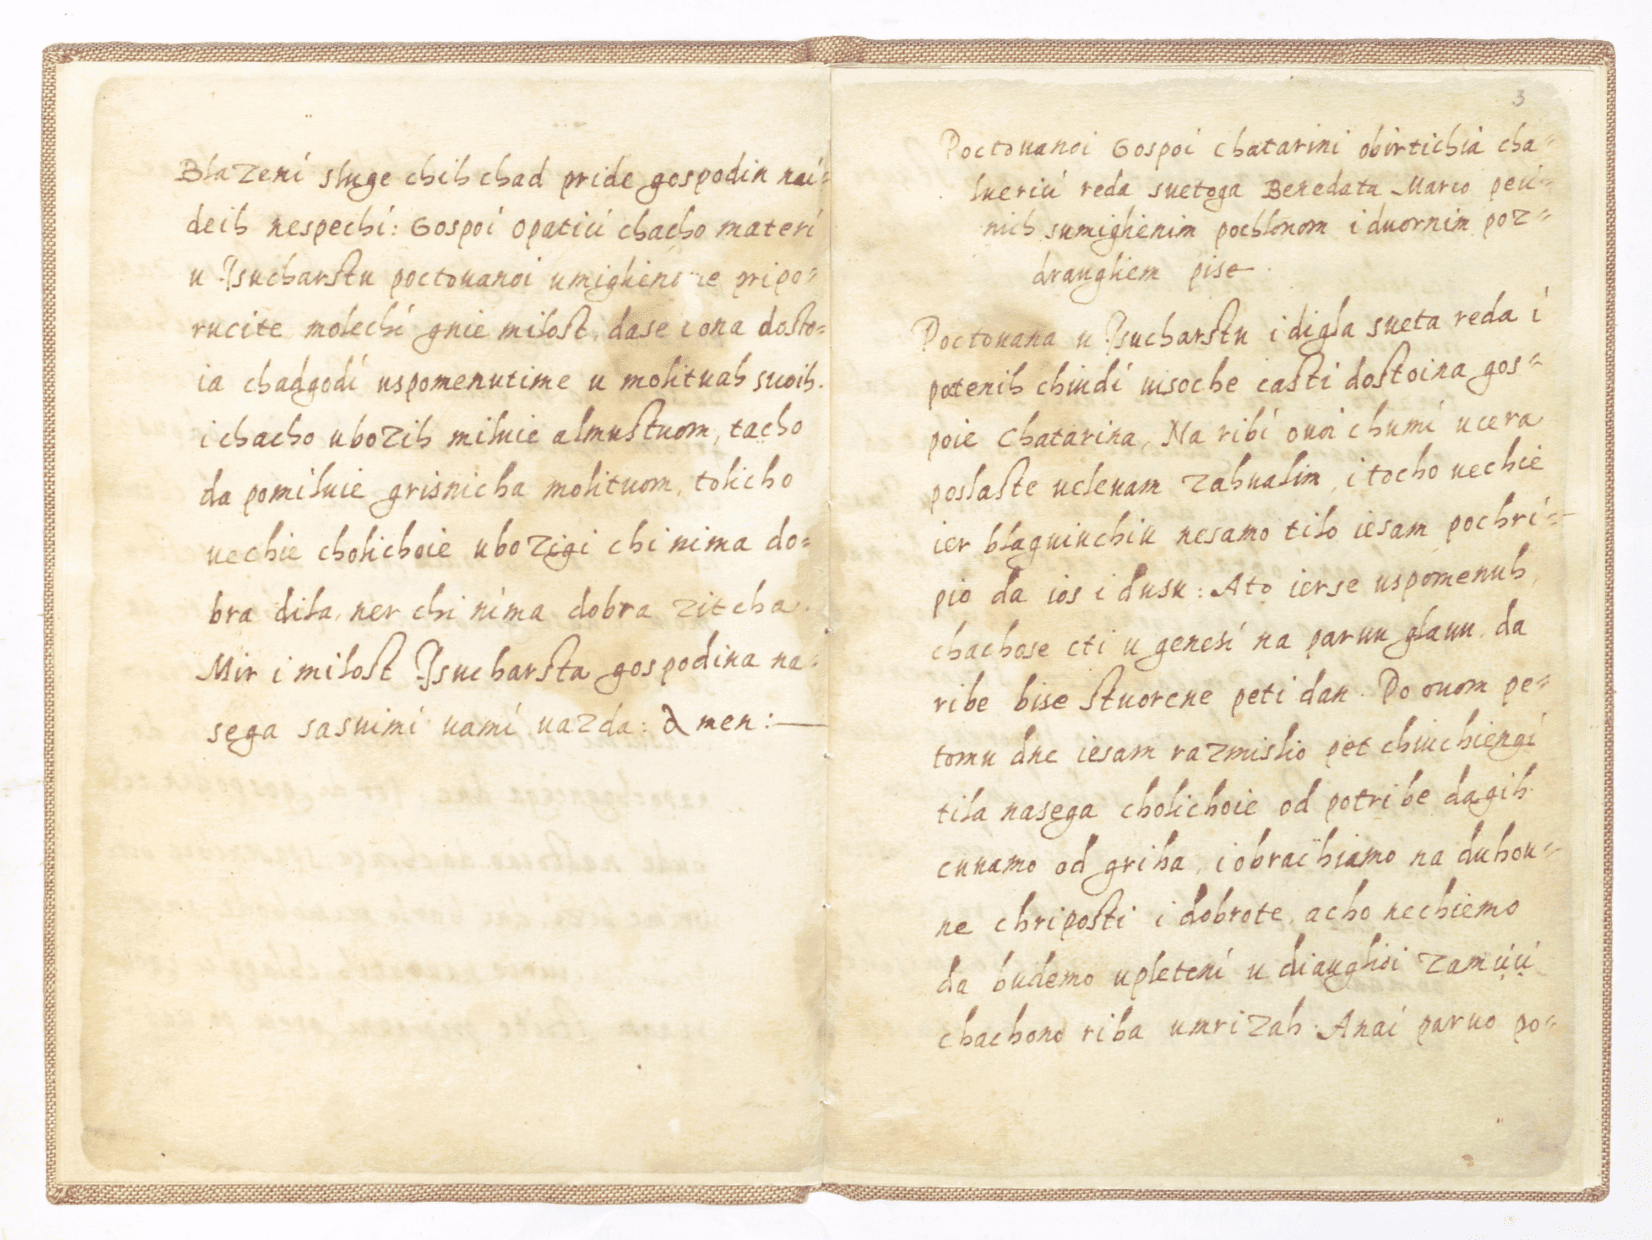 Blazeni sluge chih chad pride gospodin nai-
deih nespechi: Gospoi Opatici chacho materi
u Isucharstu poctovanoi umigheno pripo-
rucite molechi gnie milost, dase i ona dosto-
ia chadgodi uspomenutime u molituah suoih.
i chacho ubozih miluie almustuom, tacho
da pomiluie grisnicha molituom, tolicho
uechie cholichoie ubozigi chi nima do-
bra dila, ner chi nima dobra zitcha.
Mir i milost Isucharsta gospodina na-
sega sasuimi uami uazda: Amen:
3
Poctouanoi Gospoi Chatarini obirtichia cha-
lueriu reda suetoga Benedata Marco peu-
nih sumighenim pochlonom i duornim poz-
draughiem pise.
Poctouana u Isucharstu i digla sueta reda i
potenih chiudi uisoche casti dostoina gos-
poie Chatarina, Na ribi ouoi chumi ucera
poslaste uclenam zahualim, i tocho uechie
ier blaguiuchiu nesamo tilo iesam pochri-
pio da ios i dusu: Ato ierse uspomenuh,
chachose cti u genesi na paruu glauu da
ribe bise stuorene peti dan. Po ouom pe-
tomu dne iesam razmislio pet chiuchiengi
tila nasega cholichoie od potribe dagih
cuuamo od griha, i obrachiamo na duhou-
ne chriposti i dobrote, acho nechiemo
da budemo upleteni u diaughioi zamuii
chachono riba umrizah. Anai paruo po-